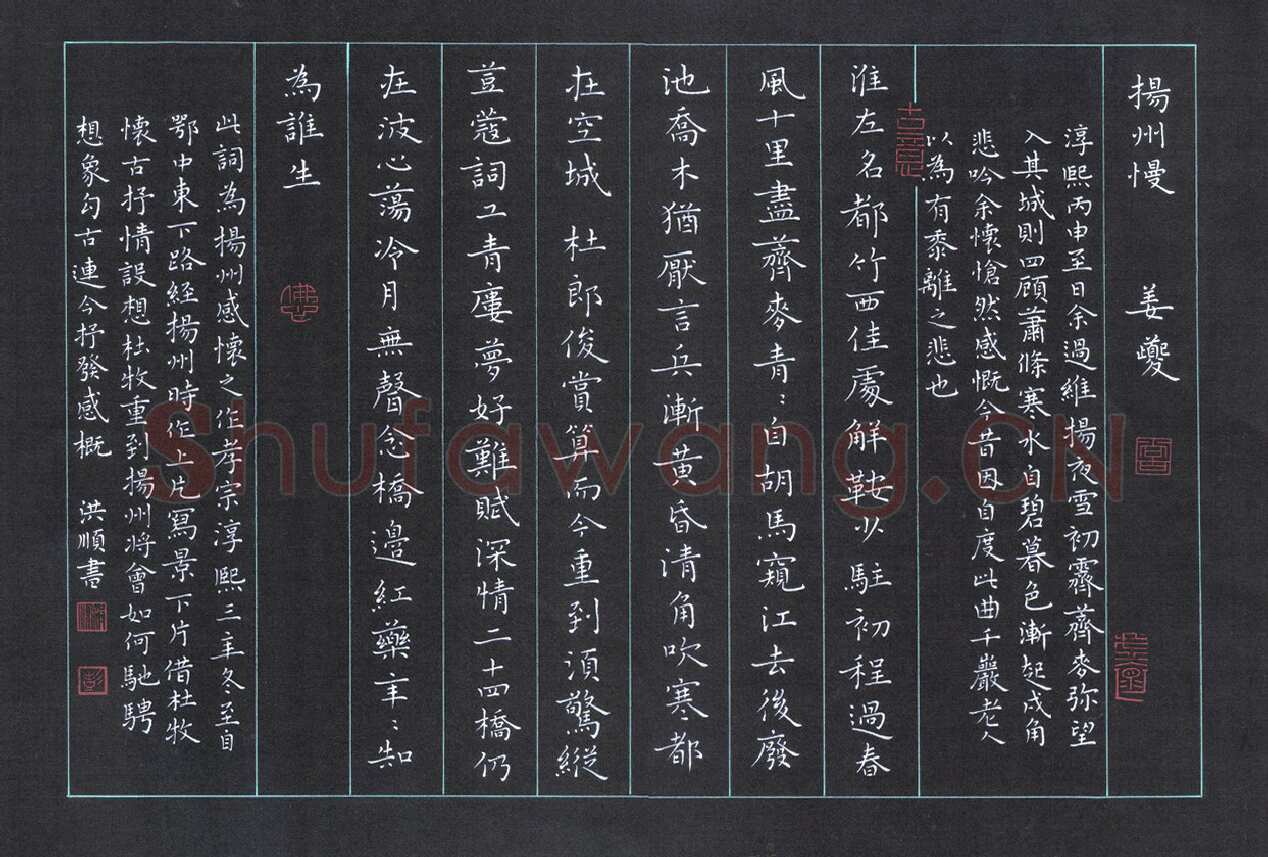 揚州慢　姜夔
淳熙丙申至日余過維揚夜雪初霽薺麥弥望
入其城則四顧蕭條寒水自碧暮色漸起戍角
悲吟余懷愴然感慨今昔因自度此曲千巖老人
以為有黍離之悲也
淮左名都竹西佳處解鞍少駐初程過春
風十里盡薺麥青〻自胡馬窺江去後廢
池喬木猶厭言兵漸黃昏清角吹寒都
在空城 杜郎俊賞算而今重到須驚縱
荳蔻詞工青廔夢好難賦深情二十四橋仍
在波心蕩冷月無聲念橋邊紅藥年〻知
為誰生
此詞為揚州感懷之作孝宗淳熙三年冬至自
鄂中東下路經揚州時作上片寫景下片借杜牧
懷古抒情設想杜牧重到揚州將會如何馳騁
想象勾古連今抒發感概　洪順書
古意
佛心
彭
Shufawang.CN